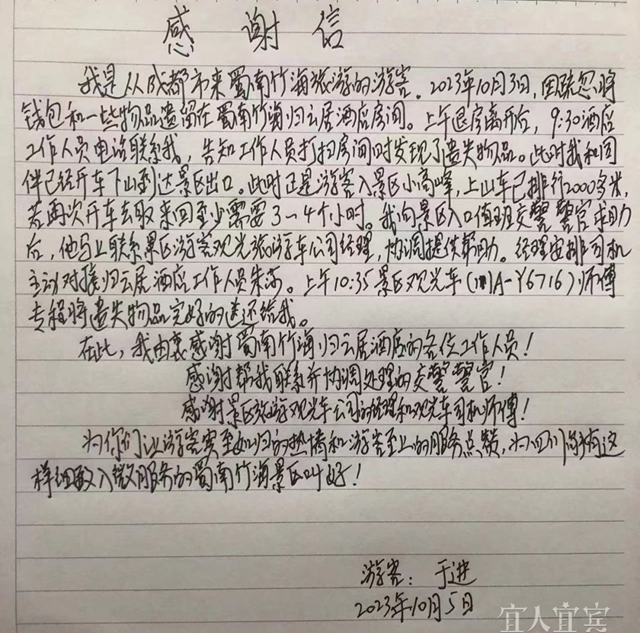 感谢信
我是从成都市来蜀南竹海旅游的游客。2023年10月3日,因疏忽将
钱包和一些物品遗留在蜀南竹海归云居酒店房间。上午退房离开后,9:30酒店
工作人员电话联系我,告知工作人员打扫房间时发现了遗失物品。此时我和同
伴已经开车下山到达景区出口。此时正是游客入景区小高峰,上山车已排行2000多米,
若再次开车去取来回至少需要3~4个小时。我向景区入口值班交警警官求助
后,他马上联系景区游客观光旅游车公司经理,协调提供帮助。经理安排司机
主动对接归云居酒店工作人员朱莎。上午10:35景区观光车(川A-Y6716)师傅
专程将遗失物品完好的送还给我。
在此,我由衷感谢蜀南竹海归云居酒店的各位工作人员!
感谢帮我联系并协调处理的交警警官!
感谢景区旅游观光车公司的经理和观光车司机师傅!
为你们让游客宾至如归的热情和游客至上的服务点赞,为四川能有这
样细致入微服务的蜀南竹海景区叫好!
游客:于进
2023年10月5日
宜人宜宾